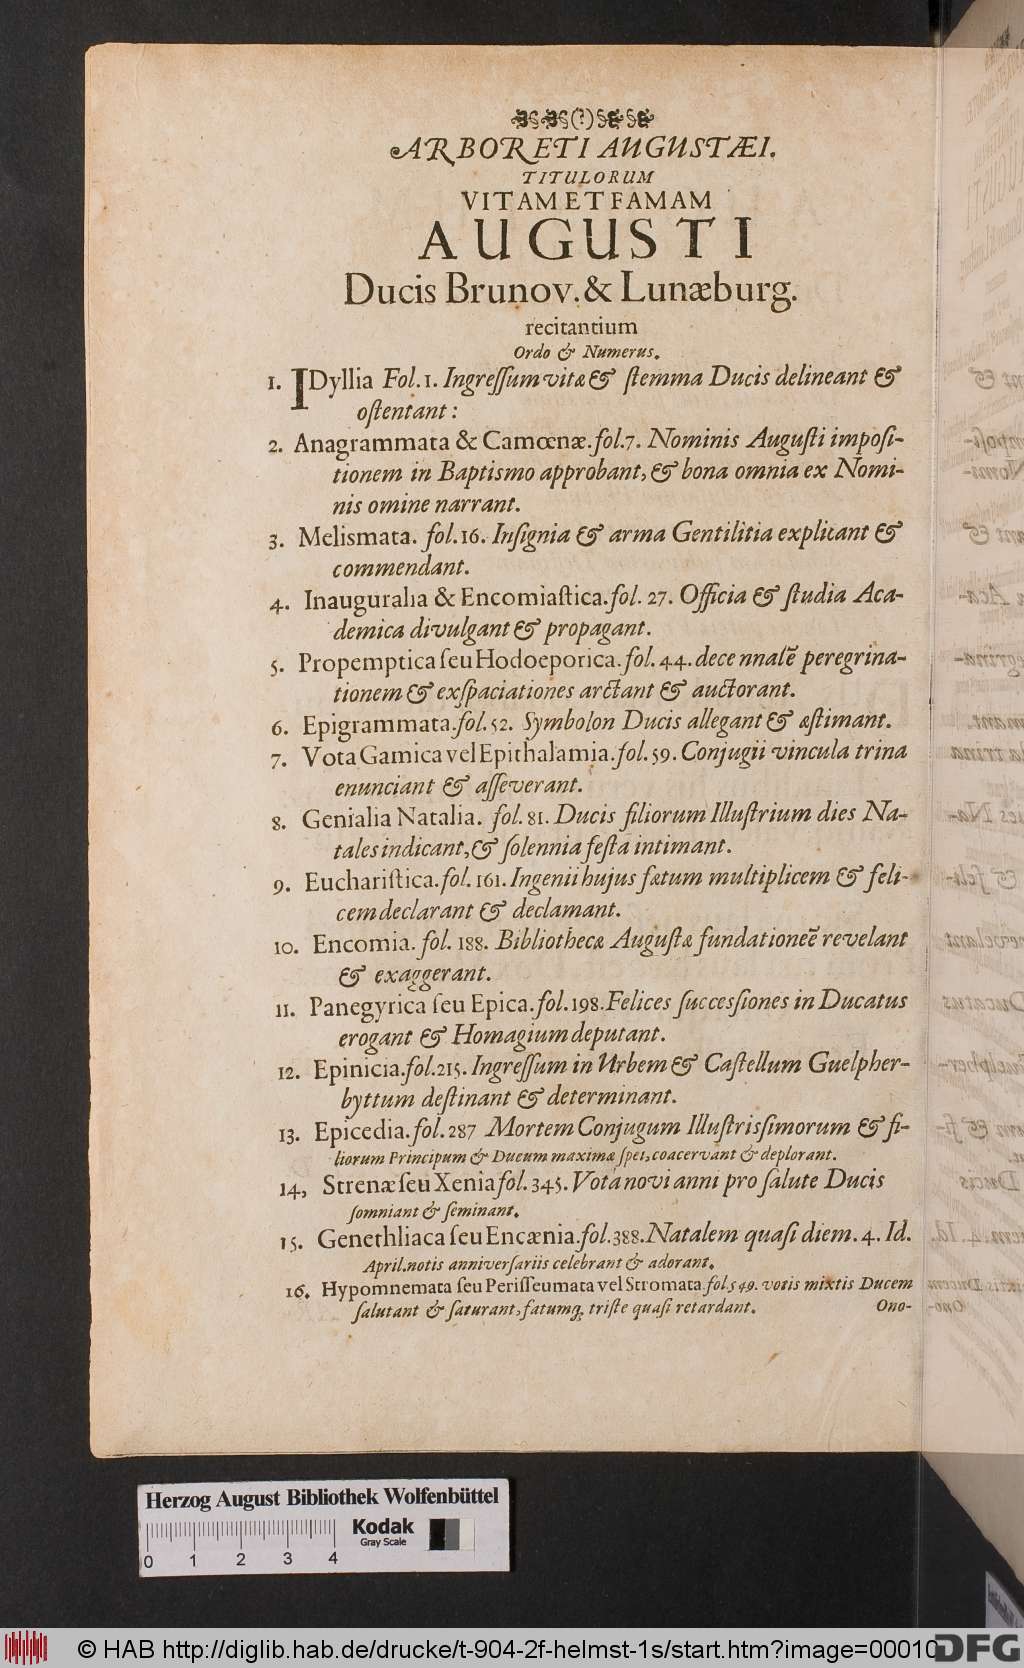 ARBORETI AUGUSTÆI.
TITULORUM
VITAM ET FAMAM
AUGUSTI
Ducis Brunov. & Lunæburg.
recitantium
Ordo & Numerus.
1. IDyllia Fol. 1. Ingreſſum vitæ & ſtemma Ducis delineant &
oſtentant:
2. Anagrammata & Camœnæ. fol. 7. Nominis Auguſti impoſi-
tionem in Baptismo approbant, & bona omnia ex Nomi-
nis omine narrant.
3. Melismata. fol. 16. Inſignia & arma Gentilitia explicant &
commendant.
4. Inauguralia & Encomiaſtica. fol. 27. Officia & ſtudia Aca-
demica divulgant & propagant.
5. Propemptica ſeu Hodoeporica. fol. 44. decennalẽ peregrina-
tionem & exſpaciationes arctant & auctorant.
6. Epigrammata. fol. 52. Symbolon Ducis allegant & æſtimant.
7. Vota Gamica vel Epithalamia. fol. 59. Conjugii vincula trina
enunciant & aſſeverant.
8. Genialia Natalia. fol. 81. Ducis filiorum Illuſtrium dies Na-
tales indicant, & ſolennia feſta intimant.
9. Euchariſtica. fol. 161. Ingenii hujus fætum multiplicem & feli-
cem declarant & declamant.
10. Encomia. fol. 188. Bibliothecæ Auguſtæ fundationeẽ revelant
& exaggerant.
11. Panegyrica ſeu Epica. fol. 198. Felices ſucceſſiones in Ducatus
erogant & Homagium deputant.
12. Epinicia. fol. 215. Ingreſſum in Urbem & Caſtellum Guelpher-
byttum deſtinant & determinant.
13. Epicedia. fol. 287 Mortem Conjugum Illuſtrisſimorum & fi-
liorum Principum & Ducum maximæ ſpei, coacervant & deplorant.
14, Strenæ ſeu Xenia fol. 345. Vota novi anni pro ſalute Ducis
ſomniant & ſeminant.
15. Genethliaca ſeu Encænia. fol. 388. Natalem quaſi diem. 4. Id.
April. notis anniverſariis celebrant & adorant.
16. Hypomnemata ſeu Periſſeumata vel Stromata fol 549. votis mixtis Ducem
ſalutant & ſaturant, fatumq; triſte quaſi retardant.
Ono-
Herzog August Bibliothek Wolfenbüttel
Kodak
Gray Scale
0 1 2 3 4
© HAB http://diglib.hab.de/drucke/t-904-2f-helmst-1s/start.htm?image=00010
DFG